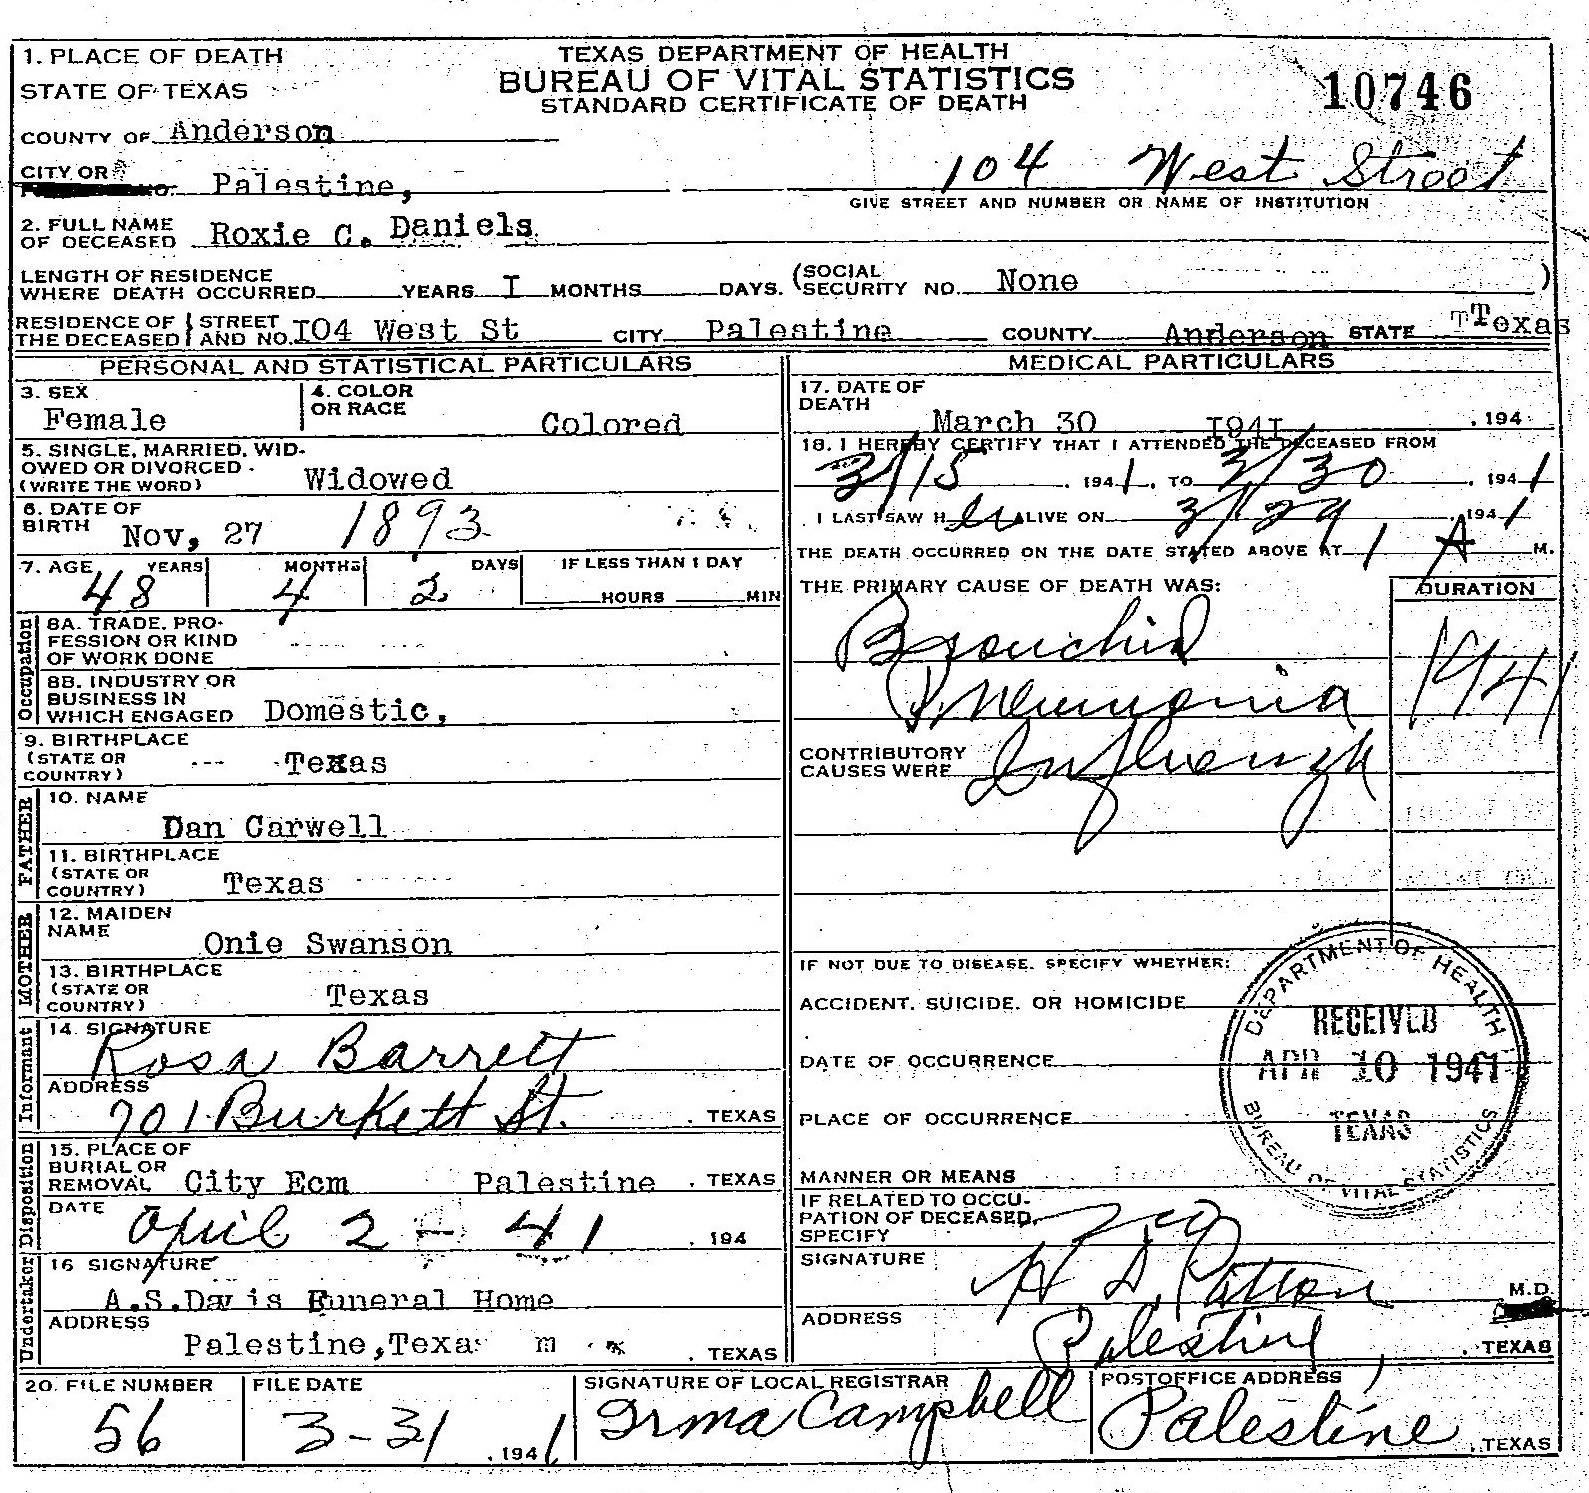 TEXAS DEPARTMENT OF HEALTH
BUREAU OF VITAL STATISTICS
STANDARD CERTIFICATE OF DEATH
10746
1. PLACE OF DEATH
STATE OF TEXAS
COUNTY OF Anderson
CITY OR Palestine, 104 West Street
GIVE STREET AND NUMBER OR NAME OF INSTITUTION
2. FULL NAME OF DECEASED Roxie C. Daniels
LENGTH OF RESIDENCE WHERE DEATH OCCURRED YEARS I MONTHS DAYS. (SOCIAL SECURITY NO. None )
RESIDENCE OF THE DECEASED STREET AND NO. I04 West St CITY Palestine COUNTY Anderson STATE TTexas
PERSONAL AND STATISTICAL PARTICULARS
3. SEX Female
4. COLOR OR RACE Colored
5. SINGLE, MARRIED, WID-
OWED OR DIVORCED
(WRITE THE WORD) Widowed
6. DATE OF BIRTH Nov, 27 1893
7. AGE YEARS MONTHS DAYS IF LESS THAN 1 DAY
48 4 2 HOURS MIN
Occupation
8A. TRADE, PRO-
FESSION OR KIND
OF WORK DONE
8B. INDUSTRY OR
BUSINESS IN
WHICH ENGAGED Domestic,
9. BIRTHPLACE
(STATE OR
COUNTRY) Texas
FATHER
10. NAME
Dan Carwell
11. BIRTHPLACE
(STATE OR
COUNTRY) Texas
MOTHER
12. MAIDEN
NAME Onie Swanson
13. BIRTHPLACE
(STATE OR
COUNTRY) Texas
Informant
14. SIGNATURE
Rosa Barrett
ADDRESS
701 Burkett St. . TEXAS
Disposition
15. PLACE OF
BURIAL OR
REMOVAL City Ecm Palestine . TEXAS
DATE April 2 - 41 . 194
Undertaker
16 SIGNATURE
A.S.Davis Funeral Home
ADDRESS
Palestine,Texas . TEXAS
MEDICAL PARTICULARS
17. DATE OF
DEATH March 30 I94I . 194
18. I HEREBY CERTIFY THAT I ATTENDED THE DECEASED FROM
3/15 . 1941. TO 3/30 . 1941
I LAST SAW Her ALIVE ON 3/29, . 1941
THE DEATH OCCURRED ON THE DATE STATED ABOVE AT 1 A M.
THE PRIMARY CAUSE OF DEATH WAS: DURATION
Bronchial
Pneumonia 1941
CONTRIBUTORY
CAUSES WERE Influenza
IF NOT DUE TO DISEASE, SPECIFY WHETHER:
ACCIDENT, SUICIDE, OR HOMICIDE
DATE OF OCCURRENCE
PLACE OF OCCURRENCE
MANNER OR MEANS
DEPARTMENT OF HEALTH
RECEIVED
APR 10 1941
TEXAS
BUREAU OF VITAL STATISTICS
IF RELATED TO OCCU-
PATION OF DECEASED,
SPECIFY
SIGNATURE H D. Patton M.D.
ADDRESS Palestine , . TEXAS
20. FILE NUMBER FILE DATE SIGNATURE OF LOCAL REGISTRAR POSTOFFICE ADDRESS
56 3-31 , 1941 Irma Campbell Palestine . TEXAS